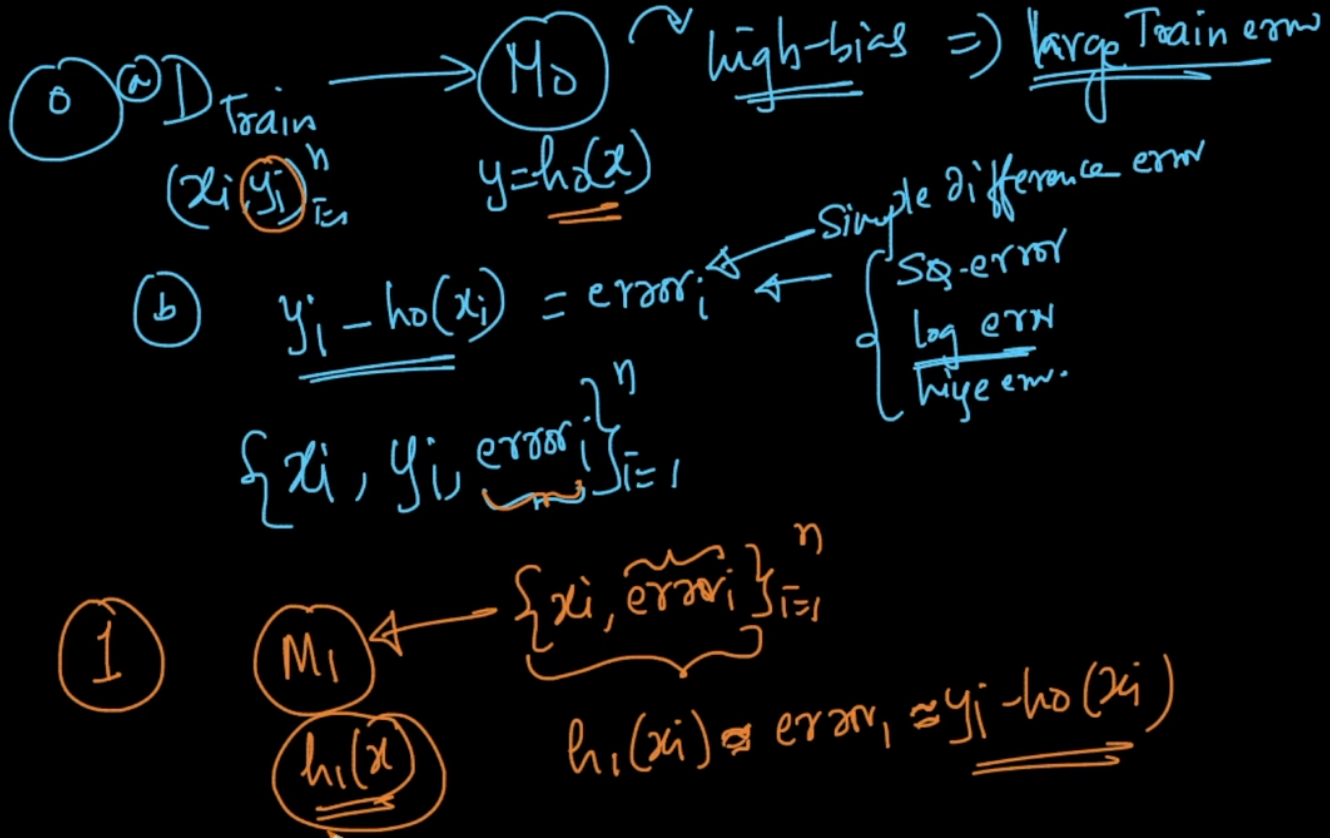 0 (a) D Train → M₀ high-bias => large Train error
(xᵢ, yᵢ)ⁿᵢ₌₁ y=h₀(x)
Simple difference error
(b) yᵢ - h₀(xᵢ) = errorᵢ ← { SQ-error
log error
{xᵢ, yᵢ, errorᵢ}ⁿᵢ₌₁
1 M₁ ← {xᵢ, errorᵢ}ⁿᵢ₌₁
h₁(x) h₁(xᵢ) ≈ errorᵢ ≈ yᵢ - h₀(xᵢ)